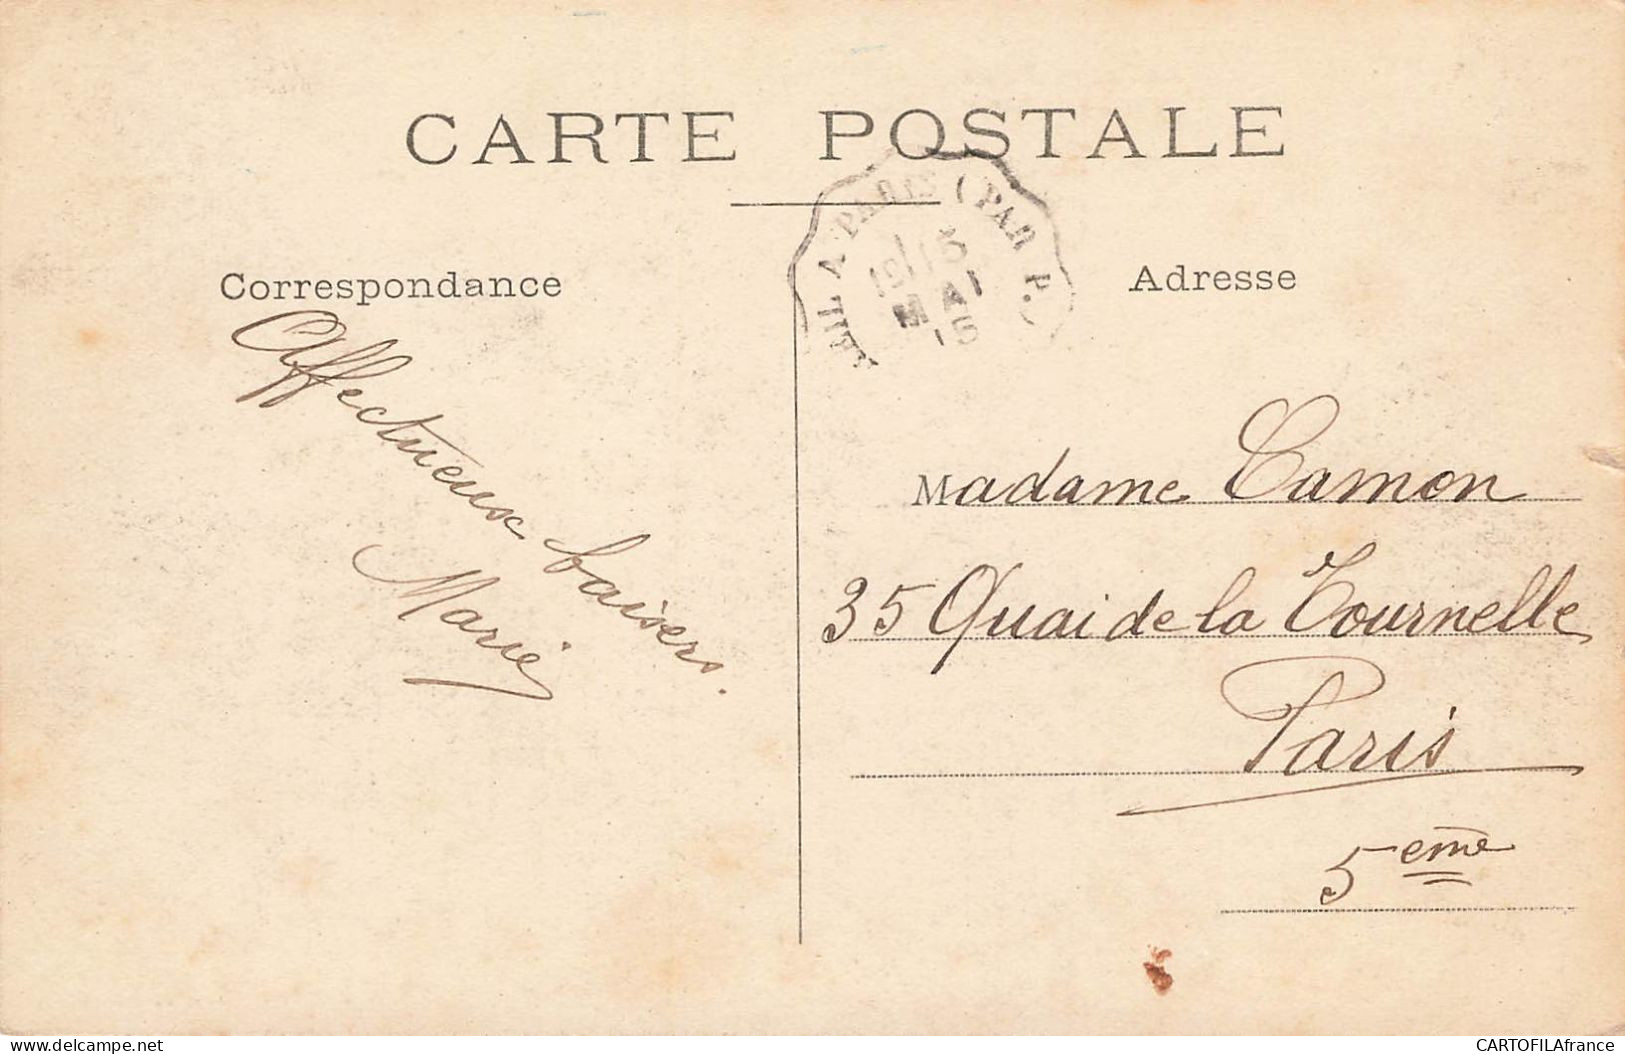 CARTE POSTALE
A PARIS (PAR P.)
13
MAI
15
Correspondance
Adresse
Affectueux baisers.
Marie
Madame Camon
35 Quai de la Tournelle
Paris
5eme
delcampe.net
CARTOFILAfrance